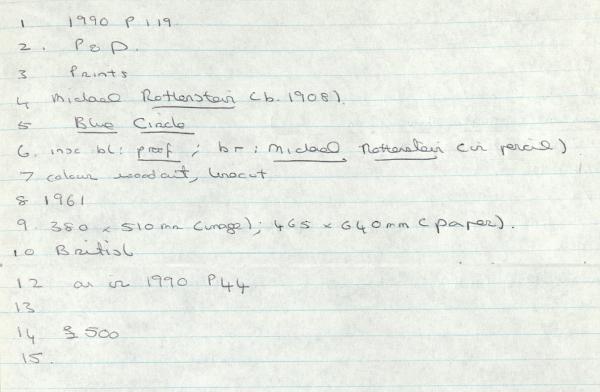 1 1990 P 119.
2. P & D.
3 Prints
4 Michael Rothenstein (b. 1908).
5 Blue Circle
6. insc bl: proof; br: Michael Rothenstein (in pencil)
7 colour woodcut, linocut
8 1961
9. 380 x 510 mm (image); 465 x 640 mm (paper).
10 British
12 as in 1990 P44
13
14 £500
15.